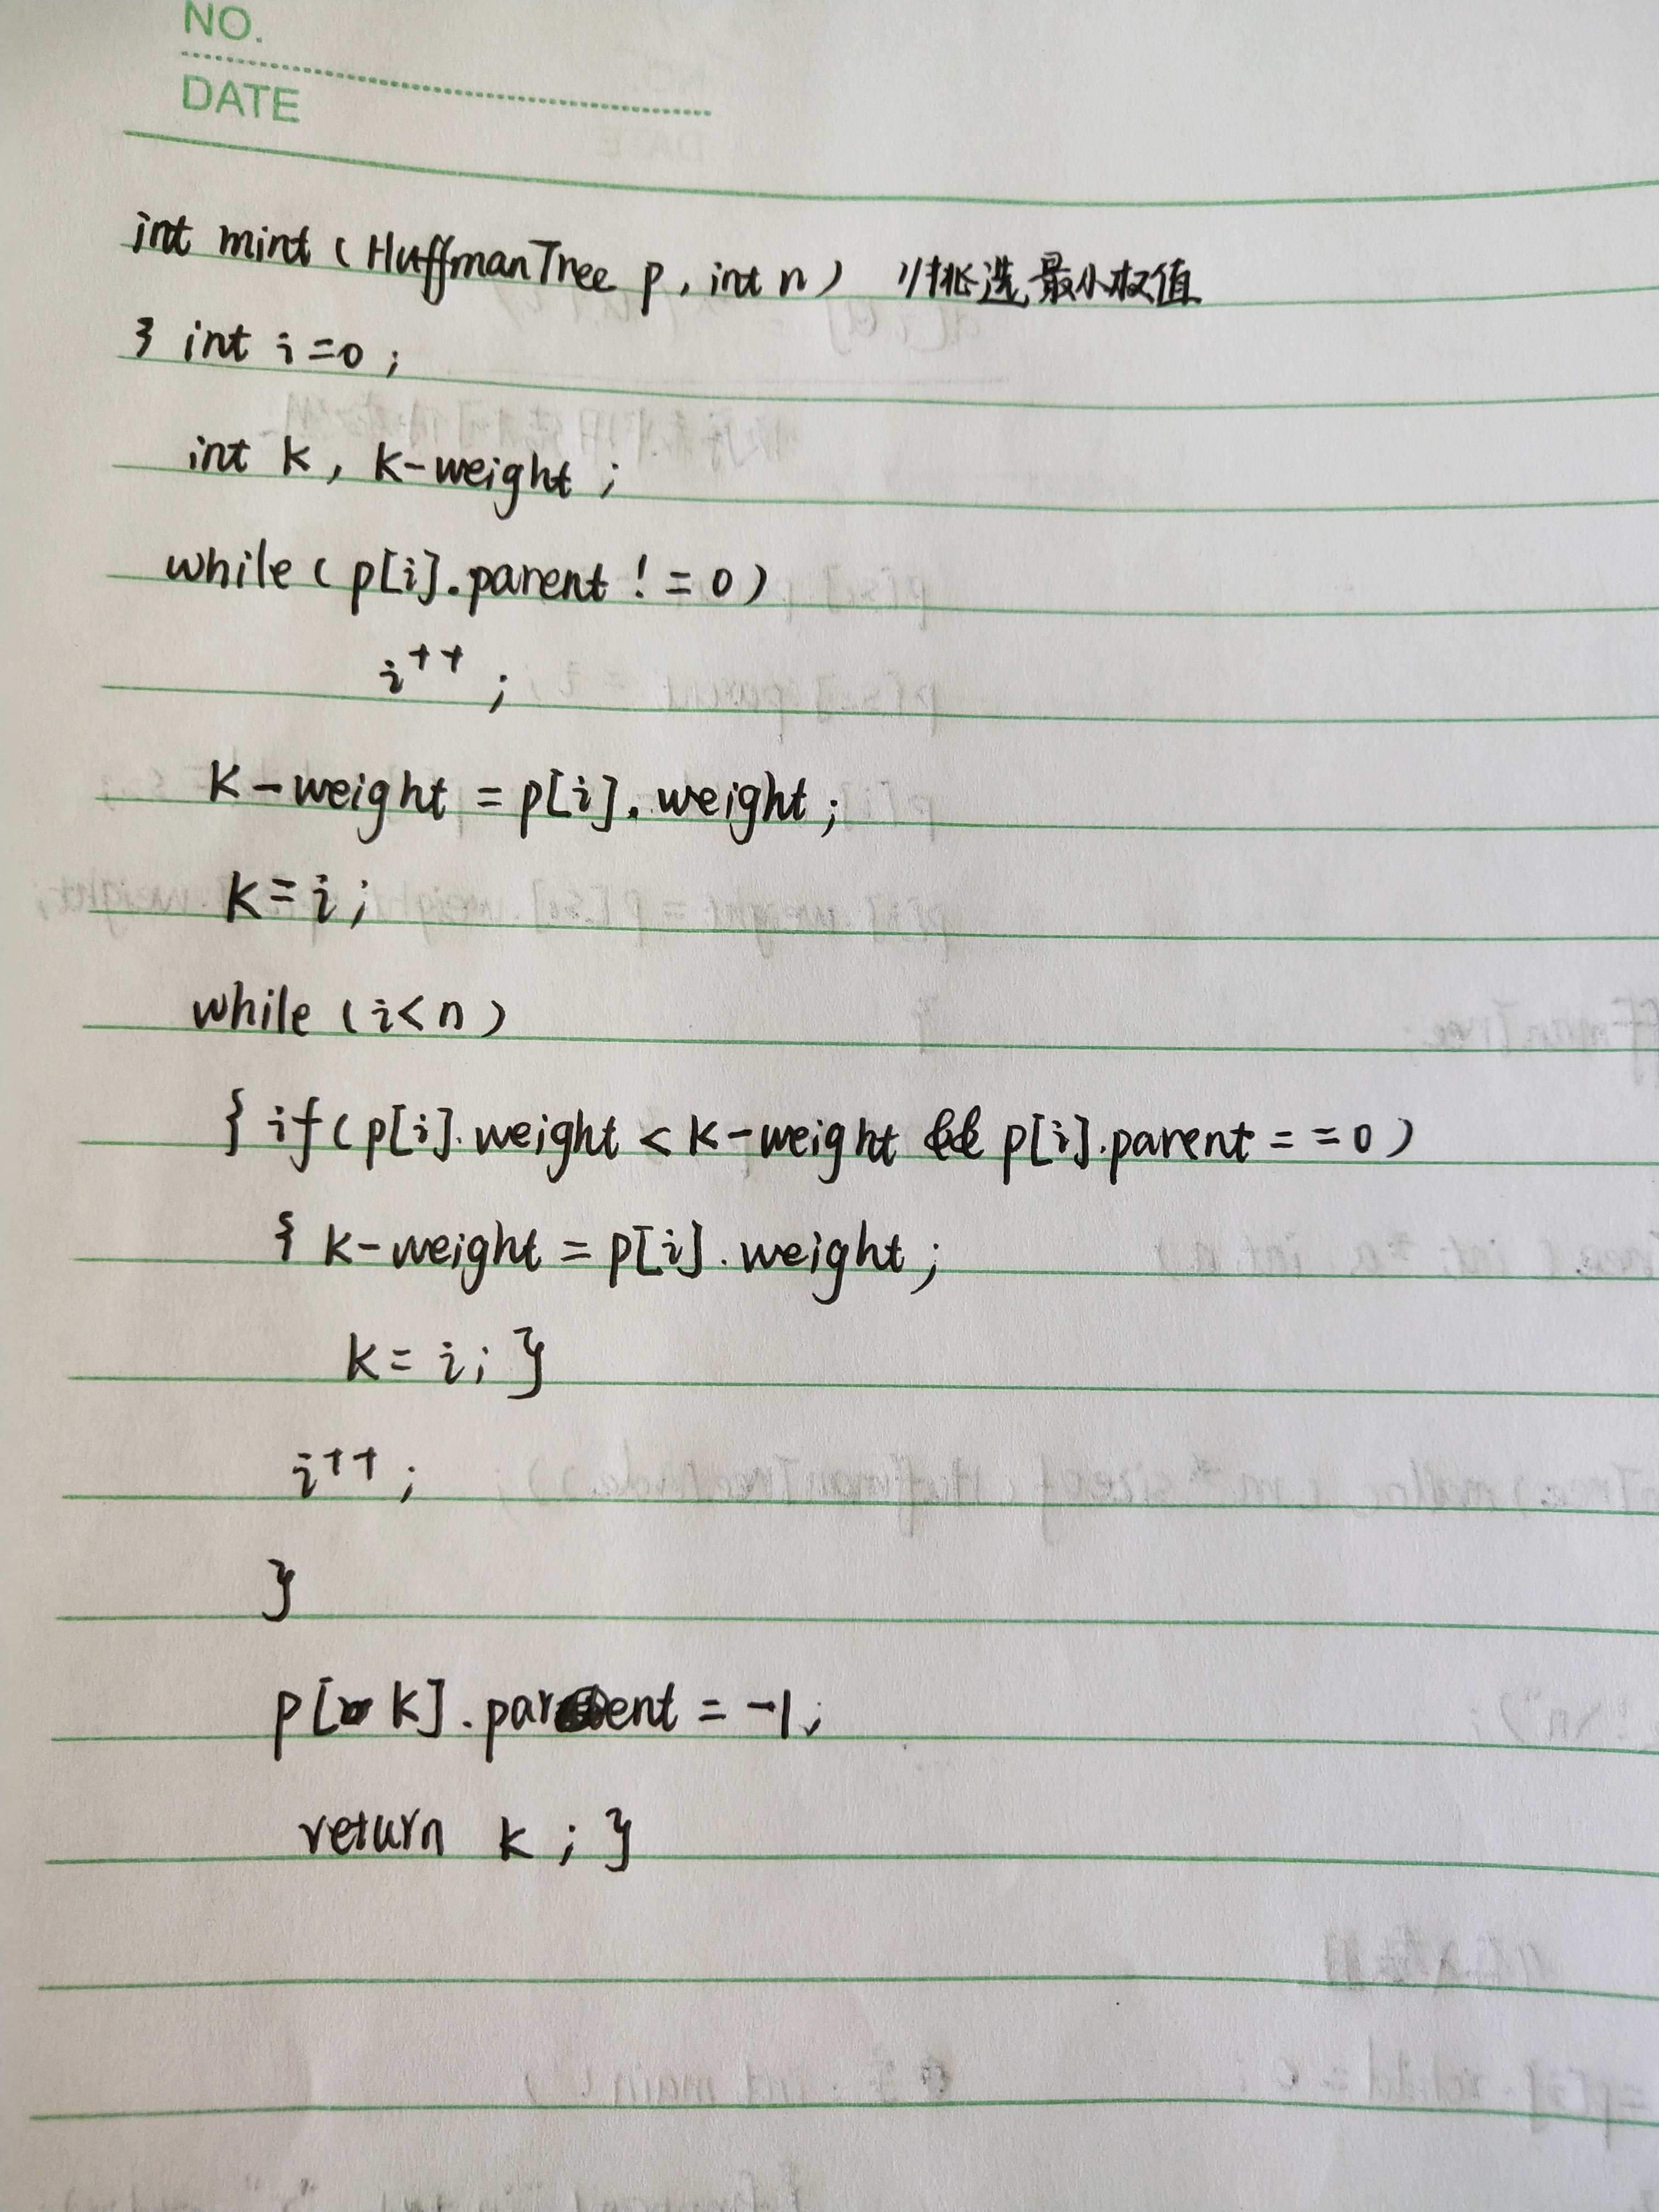 NO.
DATE
int mint (HuffmanTree p, int n) //挑选最小权值
} int i=0;
int k, k-weight;
while (p[i].parent != 0)
i++;
k-weight = p[i].weight;
k=i;
while (i<n)
{ if (p[i].weight < k-weight && p[i].parent == 0)
{ k-weight = p[i].weight;
k=i; }
i++;
}
p[k].parent = -1;
return k; }